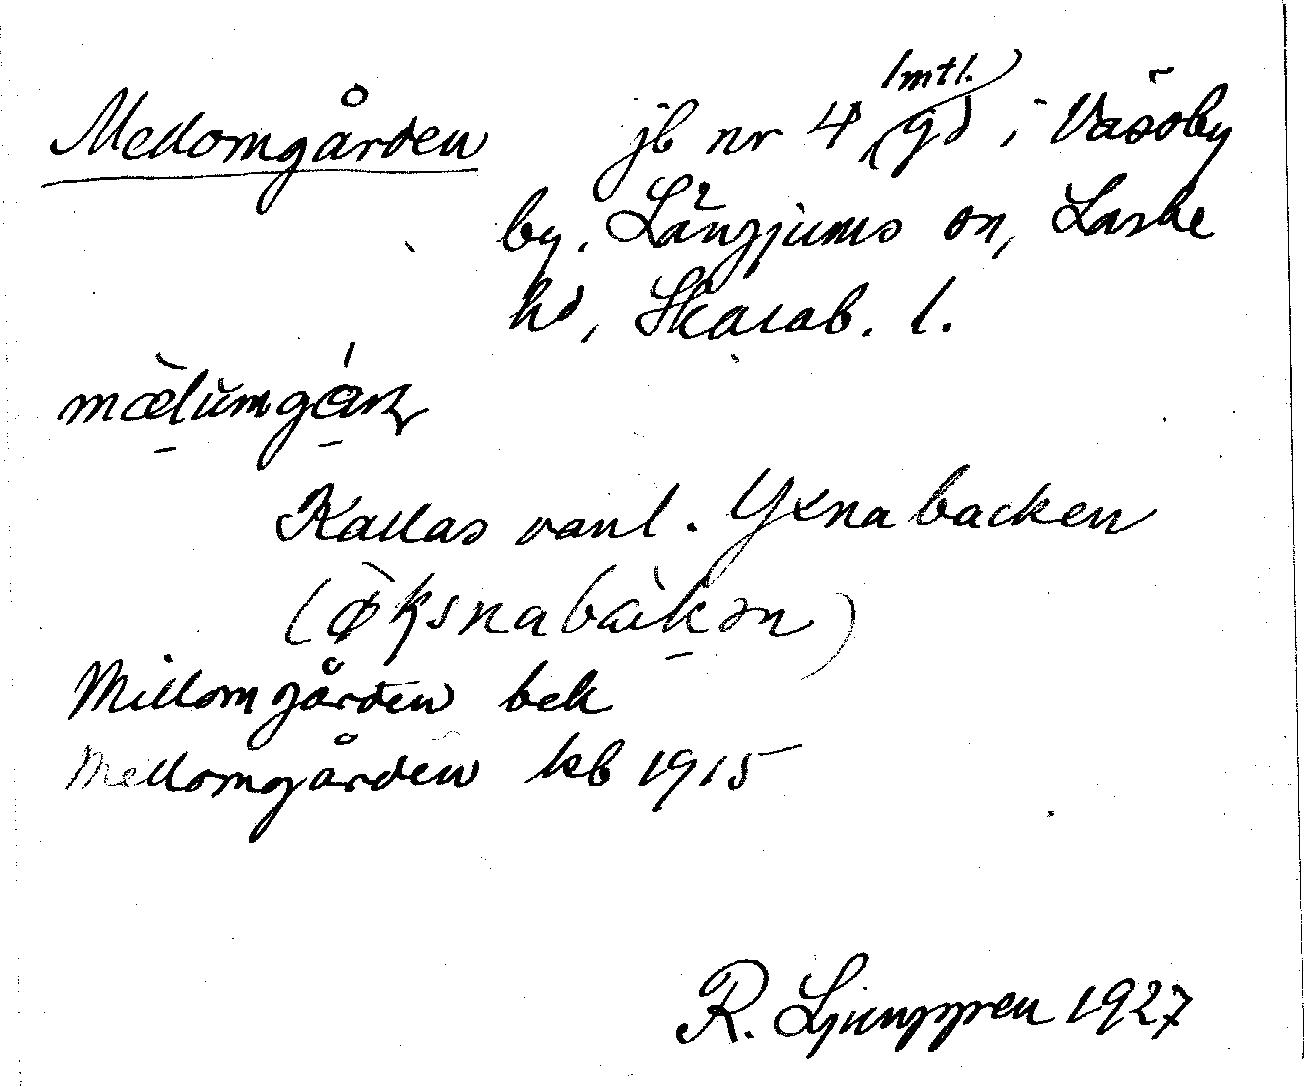 Mellomgården jb nr 4 (gd 1 mtl.) i Väsby
by, Långjums sn, Laske
hd, Skarab. l.
mælumgárn
Kallas vanl. Yxnabacken
(øksnabakən)
Mellomgården bek
Mellomgården kb 1915
R. Ljunggren 1927